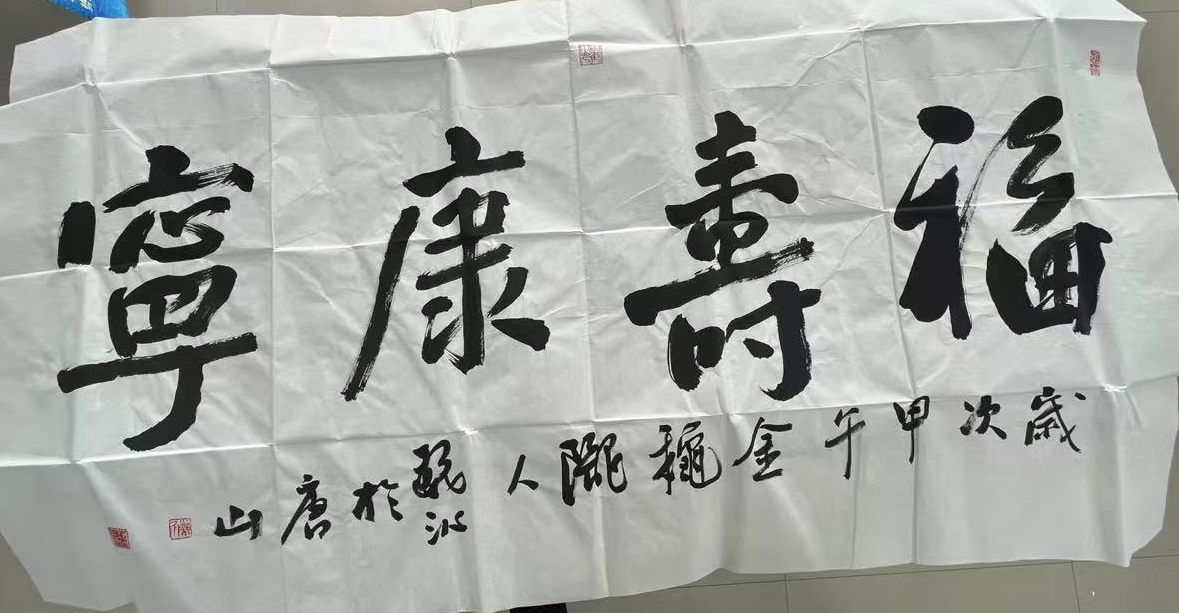 福壽康寧
歲次甲午金龝隴人
於唐山